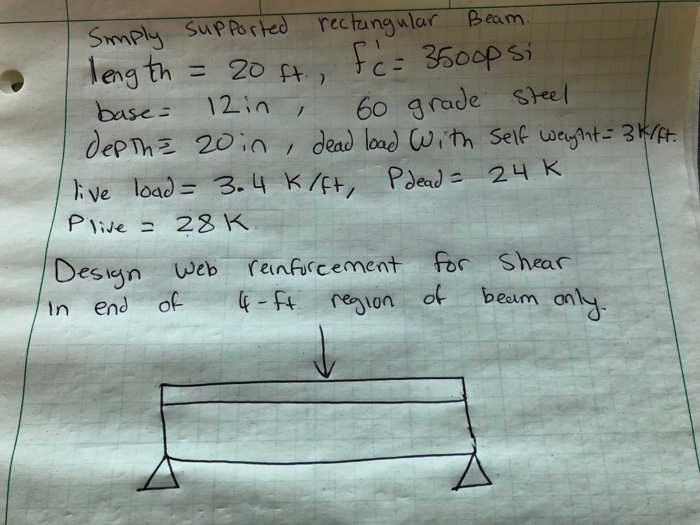 Simply supported rectangular Beam.
length = 20 ft., f'c = 3500psi
base = 12in, 60 grade steel
depth = 20in, dead load With Self weight = 3K/ft.
live load = 3.4 K/ft, Pdead = 24 K
Plive = 28 K
Design web reinforcement for shear
in end of 4-ft region of beam only.